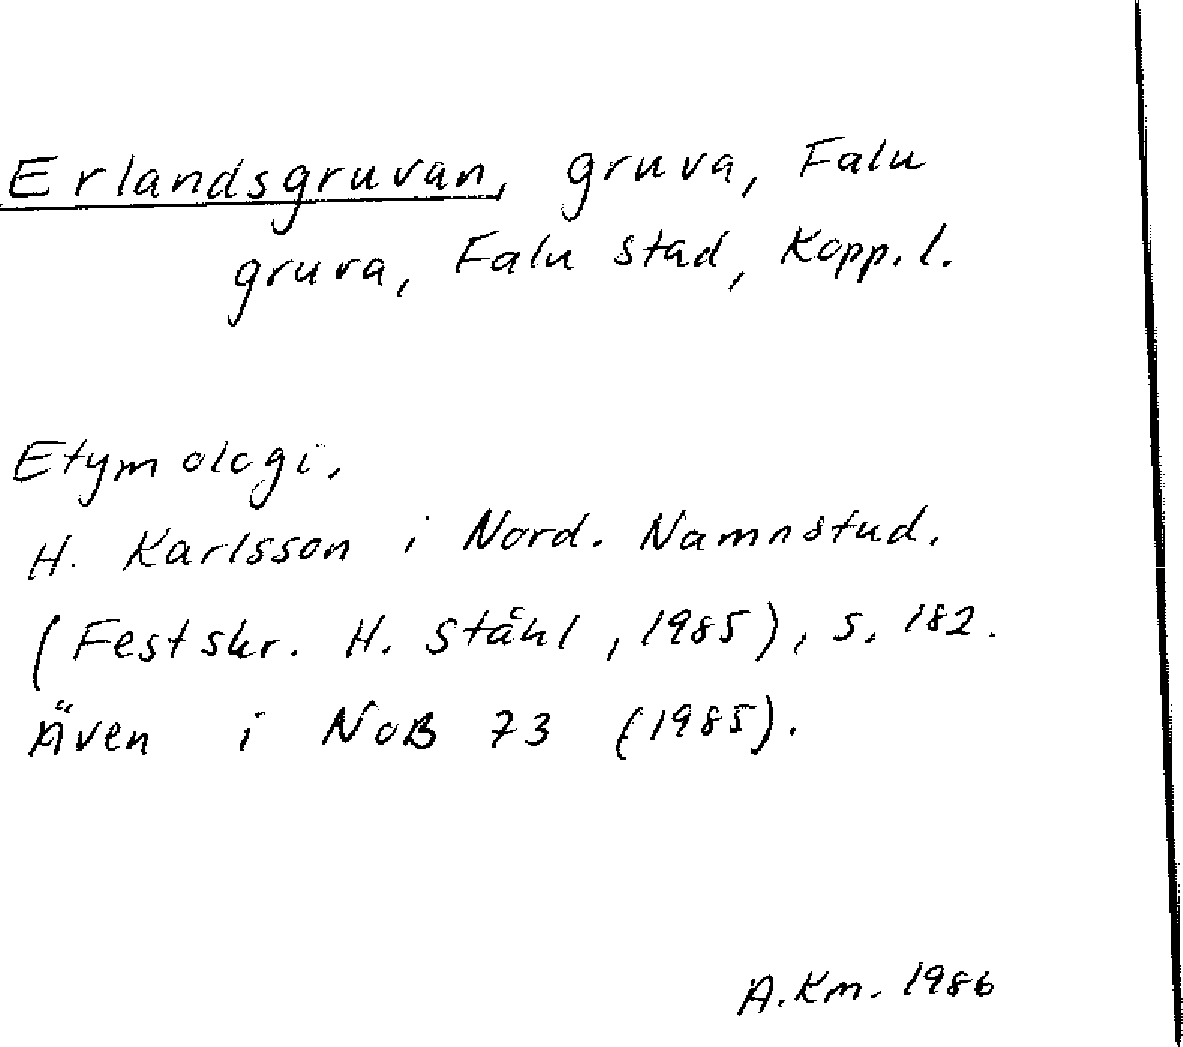 Erlandsgruvan, gruva, Falu
gruva, Falu stad, Kopp. l.
Etymologi.
H. Karlsson i Nord. Namnstud.
(Festskr. H. Ståhl, 1985), s. 182.
Även i NoB 73 (1985).
A. Km. 1986